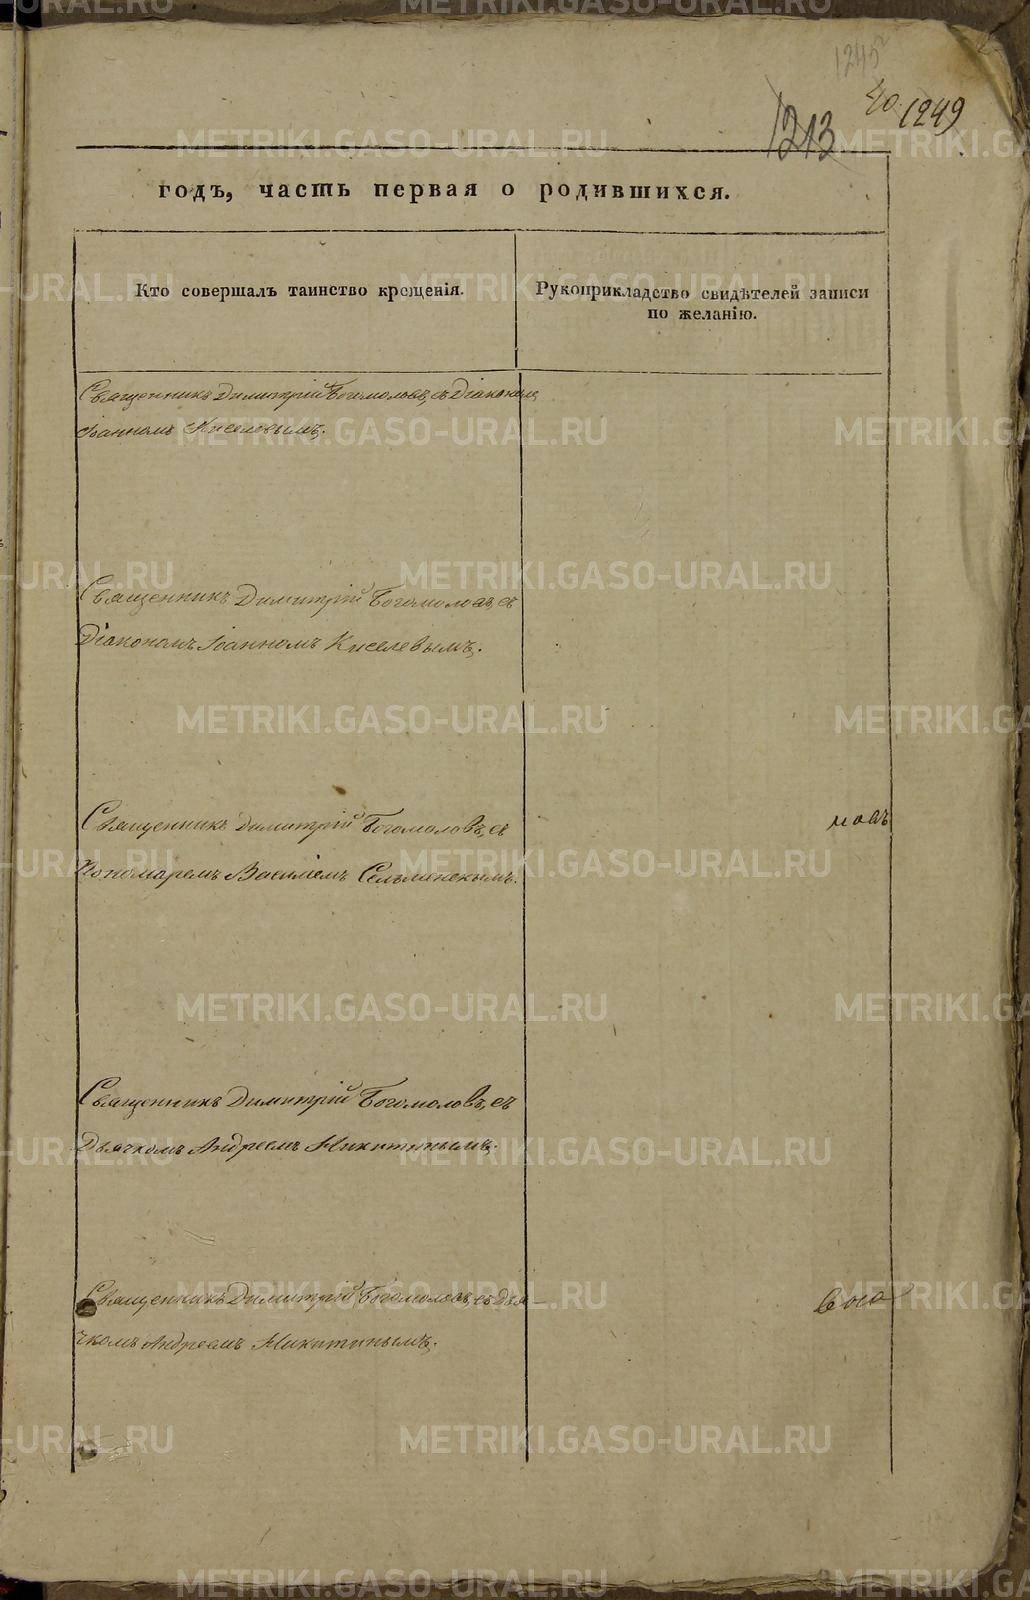 1245²
1213 40. 1249
годъ, часть первая о родившихся.
Кто совершалъ таинство крещенія.
Рукоприкладство свидѣтелей записи
по желанію.
Священникъ Димитрій Богомоловъ, съ Діакономъ
Іоанномъ Киселевымъ.
Священникъ Димитрій Богомоловъ, съ
Діакономъ Іоанномъ Киселевымъ.
Священникъ Димитрій Богомоловъ, съ
Пономаремъ Василіемъ Сельменскымъ.
новъ
Священникъ Димитрій Богомоловъ, съ
Дьячкомъ Андреемъ Никитинымъ.
Священникъ Димитрій Богомоловъ, съ Дья-
чкомъ Андреемъ Никитинымъ.
METRIKI.GASO-URAL.RU